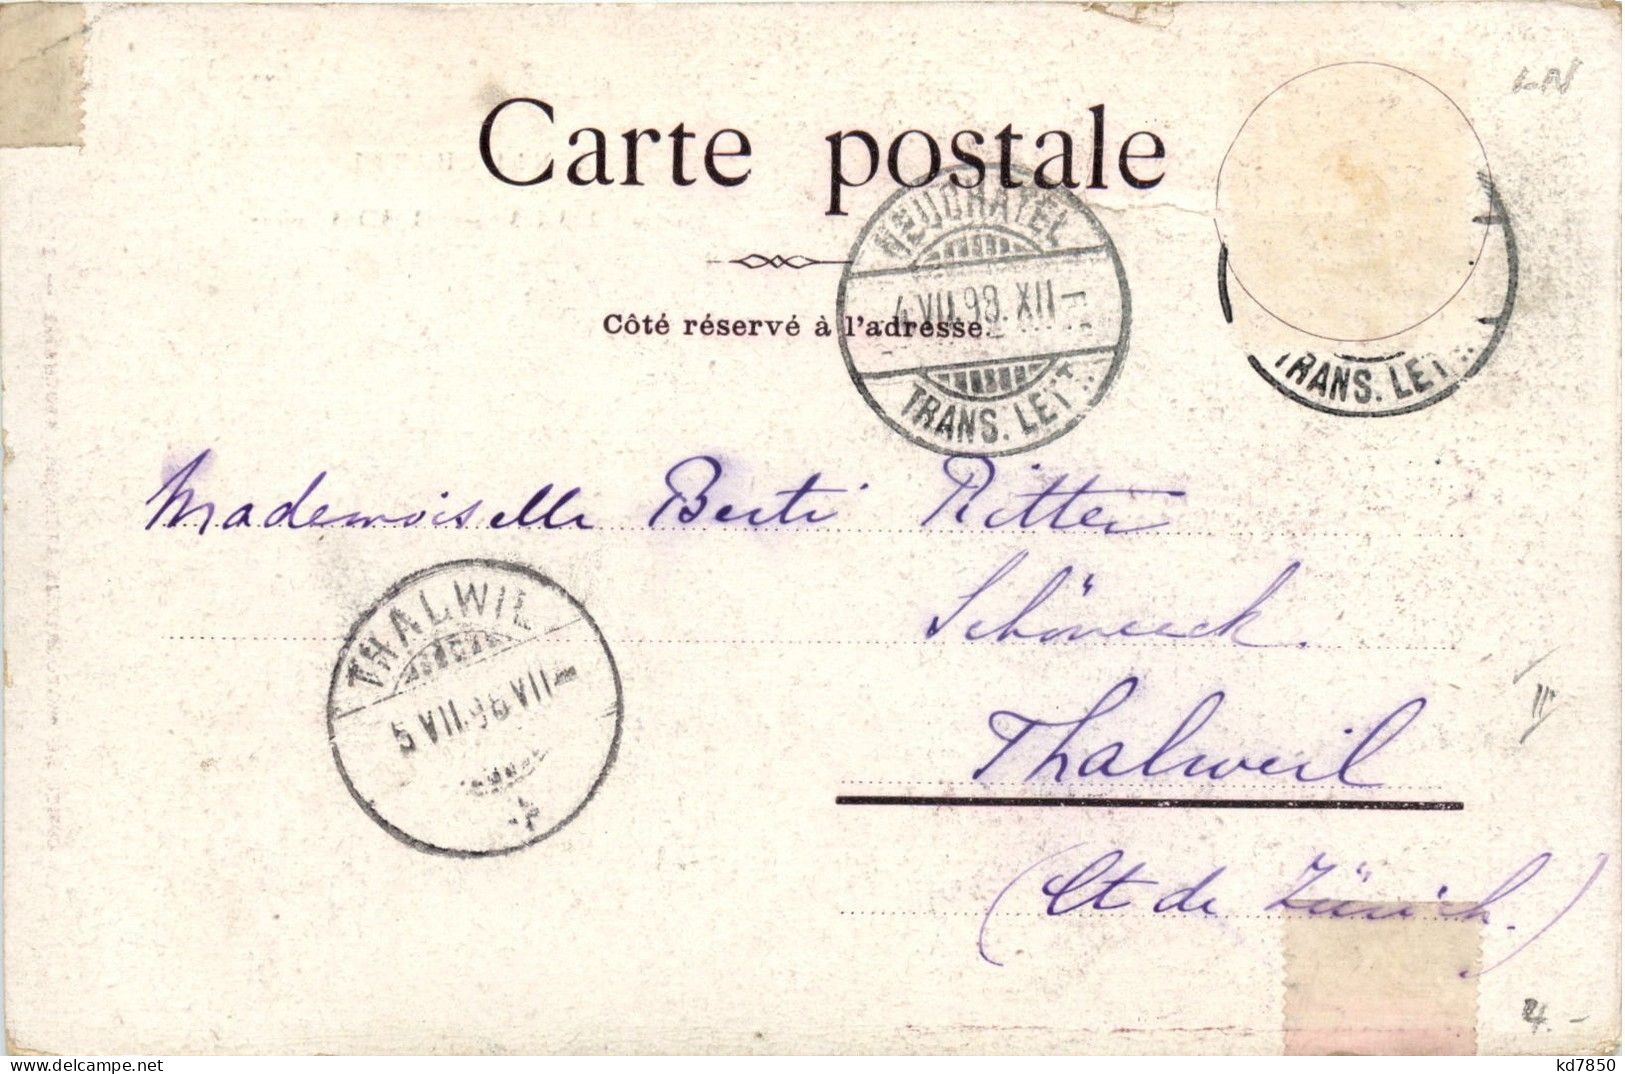 Carte postale
Côté réservé à l'adresse.
NEUCHATEL
4 VII.98. XII
TRANS. LETT.
TRANS. LETT.
Mademoiselle Berti Ritter
Schöneck.
Thalweil
(Ct de Zürich.)
THALWIL
5 VII.98 VII
4.-
kd7850